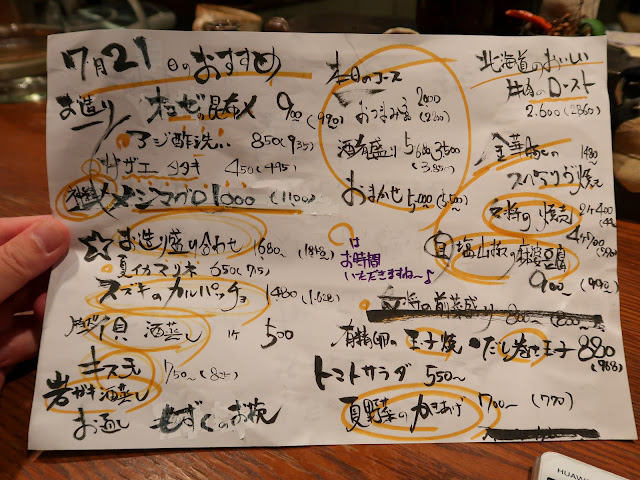 7月21日のおすすめ
お造り オコゼの昆布〆 900 (990)
アジ酢洗い 850 (935)
サザエ 450 (495)
メジマグロ 1000 (1100)
☆お造り盛り合わせ 1680〜 (1848)
夏イカマリネ 650 (715)
スズキのカルパッチョ 1480 (1628)
貝 酒蒸し 1ケ 500
キス天 750〜 (825)
岩ガキ酒蒸し
お通し もずくのお椀
本日のコース
おつまみ 2000 (2200)
酒肴盛り 3500 (3850)
おまかせ 5,000 (5,500)
●は
お時間
いただきますね〜♪
の前菜盛り 800〜
有精卵の玉子焼・だし巻き玉子 880 (968)
トマトサラダ 550〜
夏野菜のかきあげ 700〜 (770)
北海道のおいしい
牛肉のロースト
2.600 (2860)
金華豚の 1480
スパイシー焼
の焼売 2ケ400
4ケ700
塩山椒の麻婆豆腐
900〜 (990)
HUAWEI